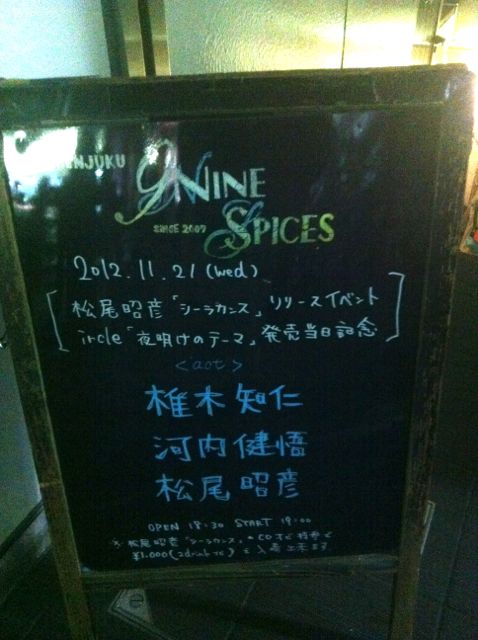 NINE
SINCE 2007
SPICES
2012.11.21(wed)
松尾昭彦「シーラカンス」リリースイベント
ircle「夜明けのテーマ」発売当日記念
<act>
椎木知仁
河内健悟
松尾昭彦
OPEN 18:30 START 19:00
※松尾昭彦"シーラカンス"のCD
¥1.000(2drink